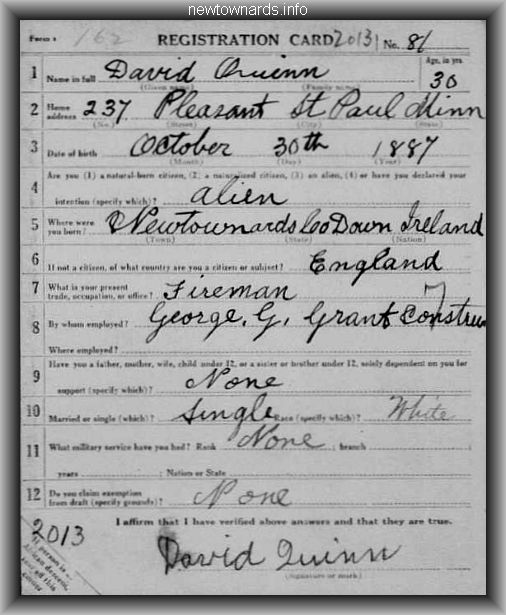 newtownards.info
Form 1 162 REGISTRATION CARD 2013 No. 81
1 Name in full David Quinn Age, in yrs. 30
(Given name) (Family name)
2 Home address 237 Pleasant St Paul Minn
(No.) (Street) (City) (State)
3 Date of birth October 30th 1887
(Month) (Day) (Year)
Are you (1) a natural-born citizen, (2) a naturalized citizen, (3) an alien, (4) or have you declared your
4 intention (specify which)? alien
5 Where were you born? Newtownards Co Down Ireland
(Town) (State) (Nation)
6 If not a citizen, of what country are you a citizen or subject? England
7 What is your present trade, occupation, or office? Fireman
8 By whom employed? George. G. Grant Construc
Where employed?
Have you a father, mother, wife, child under 12, or a sister or brother under 12, solely dependent on you for
9 support (specify which)? None
10 Married or single (which)? Single Race (specify which)? White
11 What military service have you had? Rank None ; branch
years ; Nation or State
12 Do you claim exemption from draft (specify grounds)? None
I affirm that I have verified above answers and that they are true.
2013
David Quinn
(Signature or mark)
If person is
African descent,
tear off this
corner